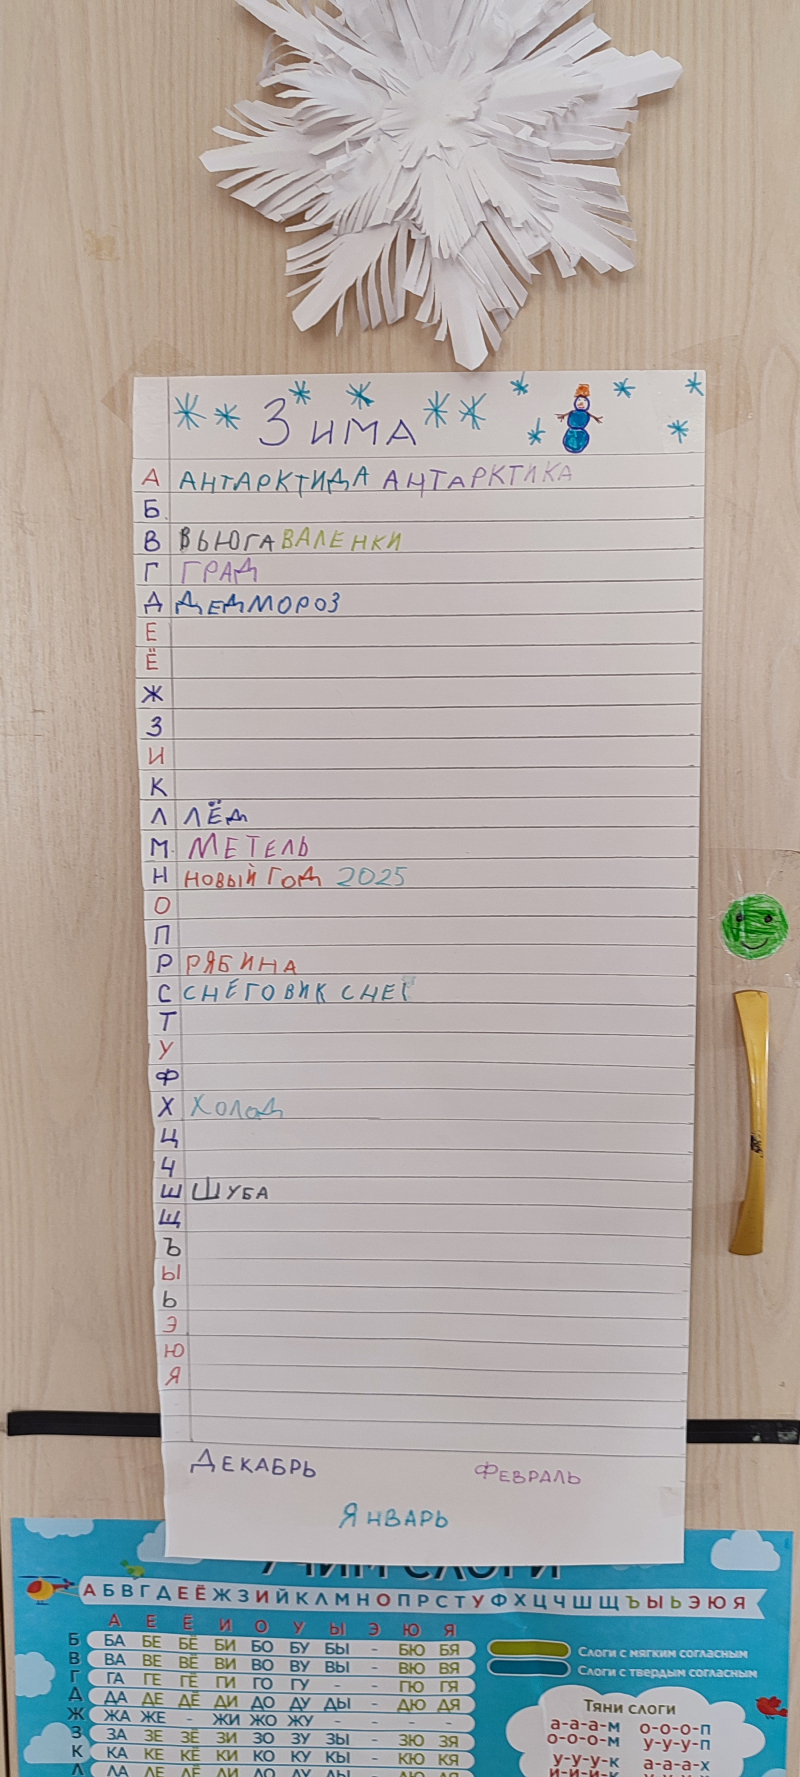 Зима
А АНТАРКТИДА АНТАРКТИКА
Б
В ВЬЮГА ВАЛЕНКИ
Г ГРАД
Д ДЕДМОРОЗ
Е
Ё
Ж
З
И
К
Л ЛЁД
М МЕТЕЛЬ
Н НОВЫЙ ГОД 2025
О
П
Р РЯБИНА
С СНЕГОВИК СНЕГ
Т
У
Ф
Х ХОЛОД
Ц
Ч
Ш ШУБА
Щ
Ъ
Ы
Ь
Э
Ю
Я
ДЕКАБРЬ ФЕВРАЛЬ
ЯНВАРЬ
УЧИМ СЛОГИ
АБВГДЕЁЖЗИЙКЛМНОПРСТУФХЦЧШЩЪЫЬЭЮЯ
А Е Ё И О У Ы Э Ю Я
Б БА БЕ БЁ БИ БО БУ БЫ - БЮ БЯ
В ВА ВЕ ВЁ ВИ ВО ВУ ВЫ - ВЮ ВЯ
Г ГА ГЕ ГЁ ГИ ГО ГУ - - ГЮ ГЯ
Д ДА ДЕ ДЁ ДИ ДО ДУ ДЫ - ДЮ ДЯ
Ж ЖА ЖЕ - ЖИ ЖО ЖУ - - - -
З ЗА ЗЕ ЗЁ ЗИ ЗО ЗУ ЗЫ - ЗЮ ЗЯ
К КА КЕ КЁ КИ КО КУ КЫ - КЮ КЯ
Л ЛА ЛЕ ЛЁ ЛИ ЛО ЛУ ЛЫ - ЛЮ ЛЯ
Слоги с мягким согласным
Слоги с твердым согласным
Тяни слоги
а-а-а-м о-о-о-п
о-о-о-м у-у-у-п
у-у-у-к а-а-а-х
и-и-и-к